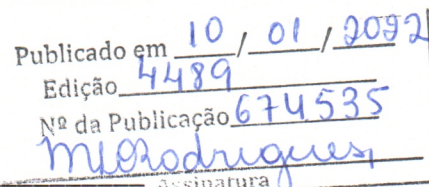 Publicado em 10 / 01 / 2022
Edição 4489
Nº da Publicação 674535
MLRodrigues
Assinatura